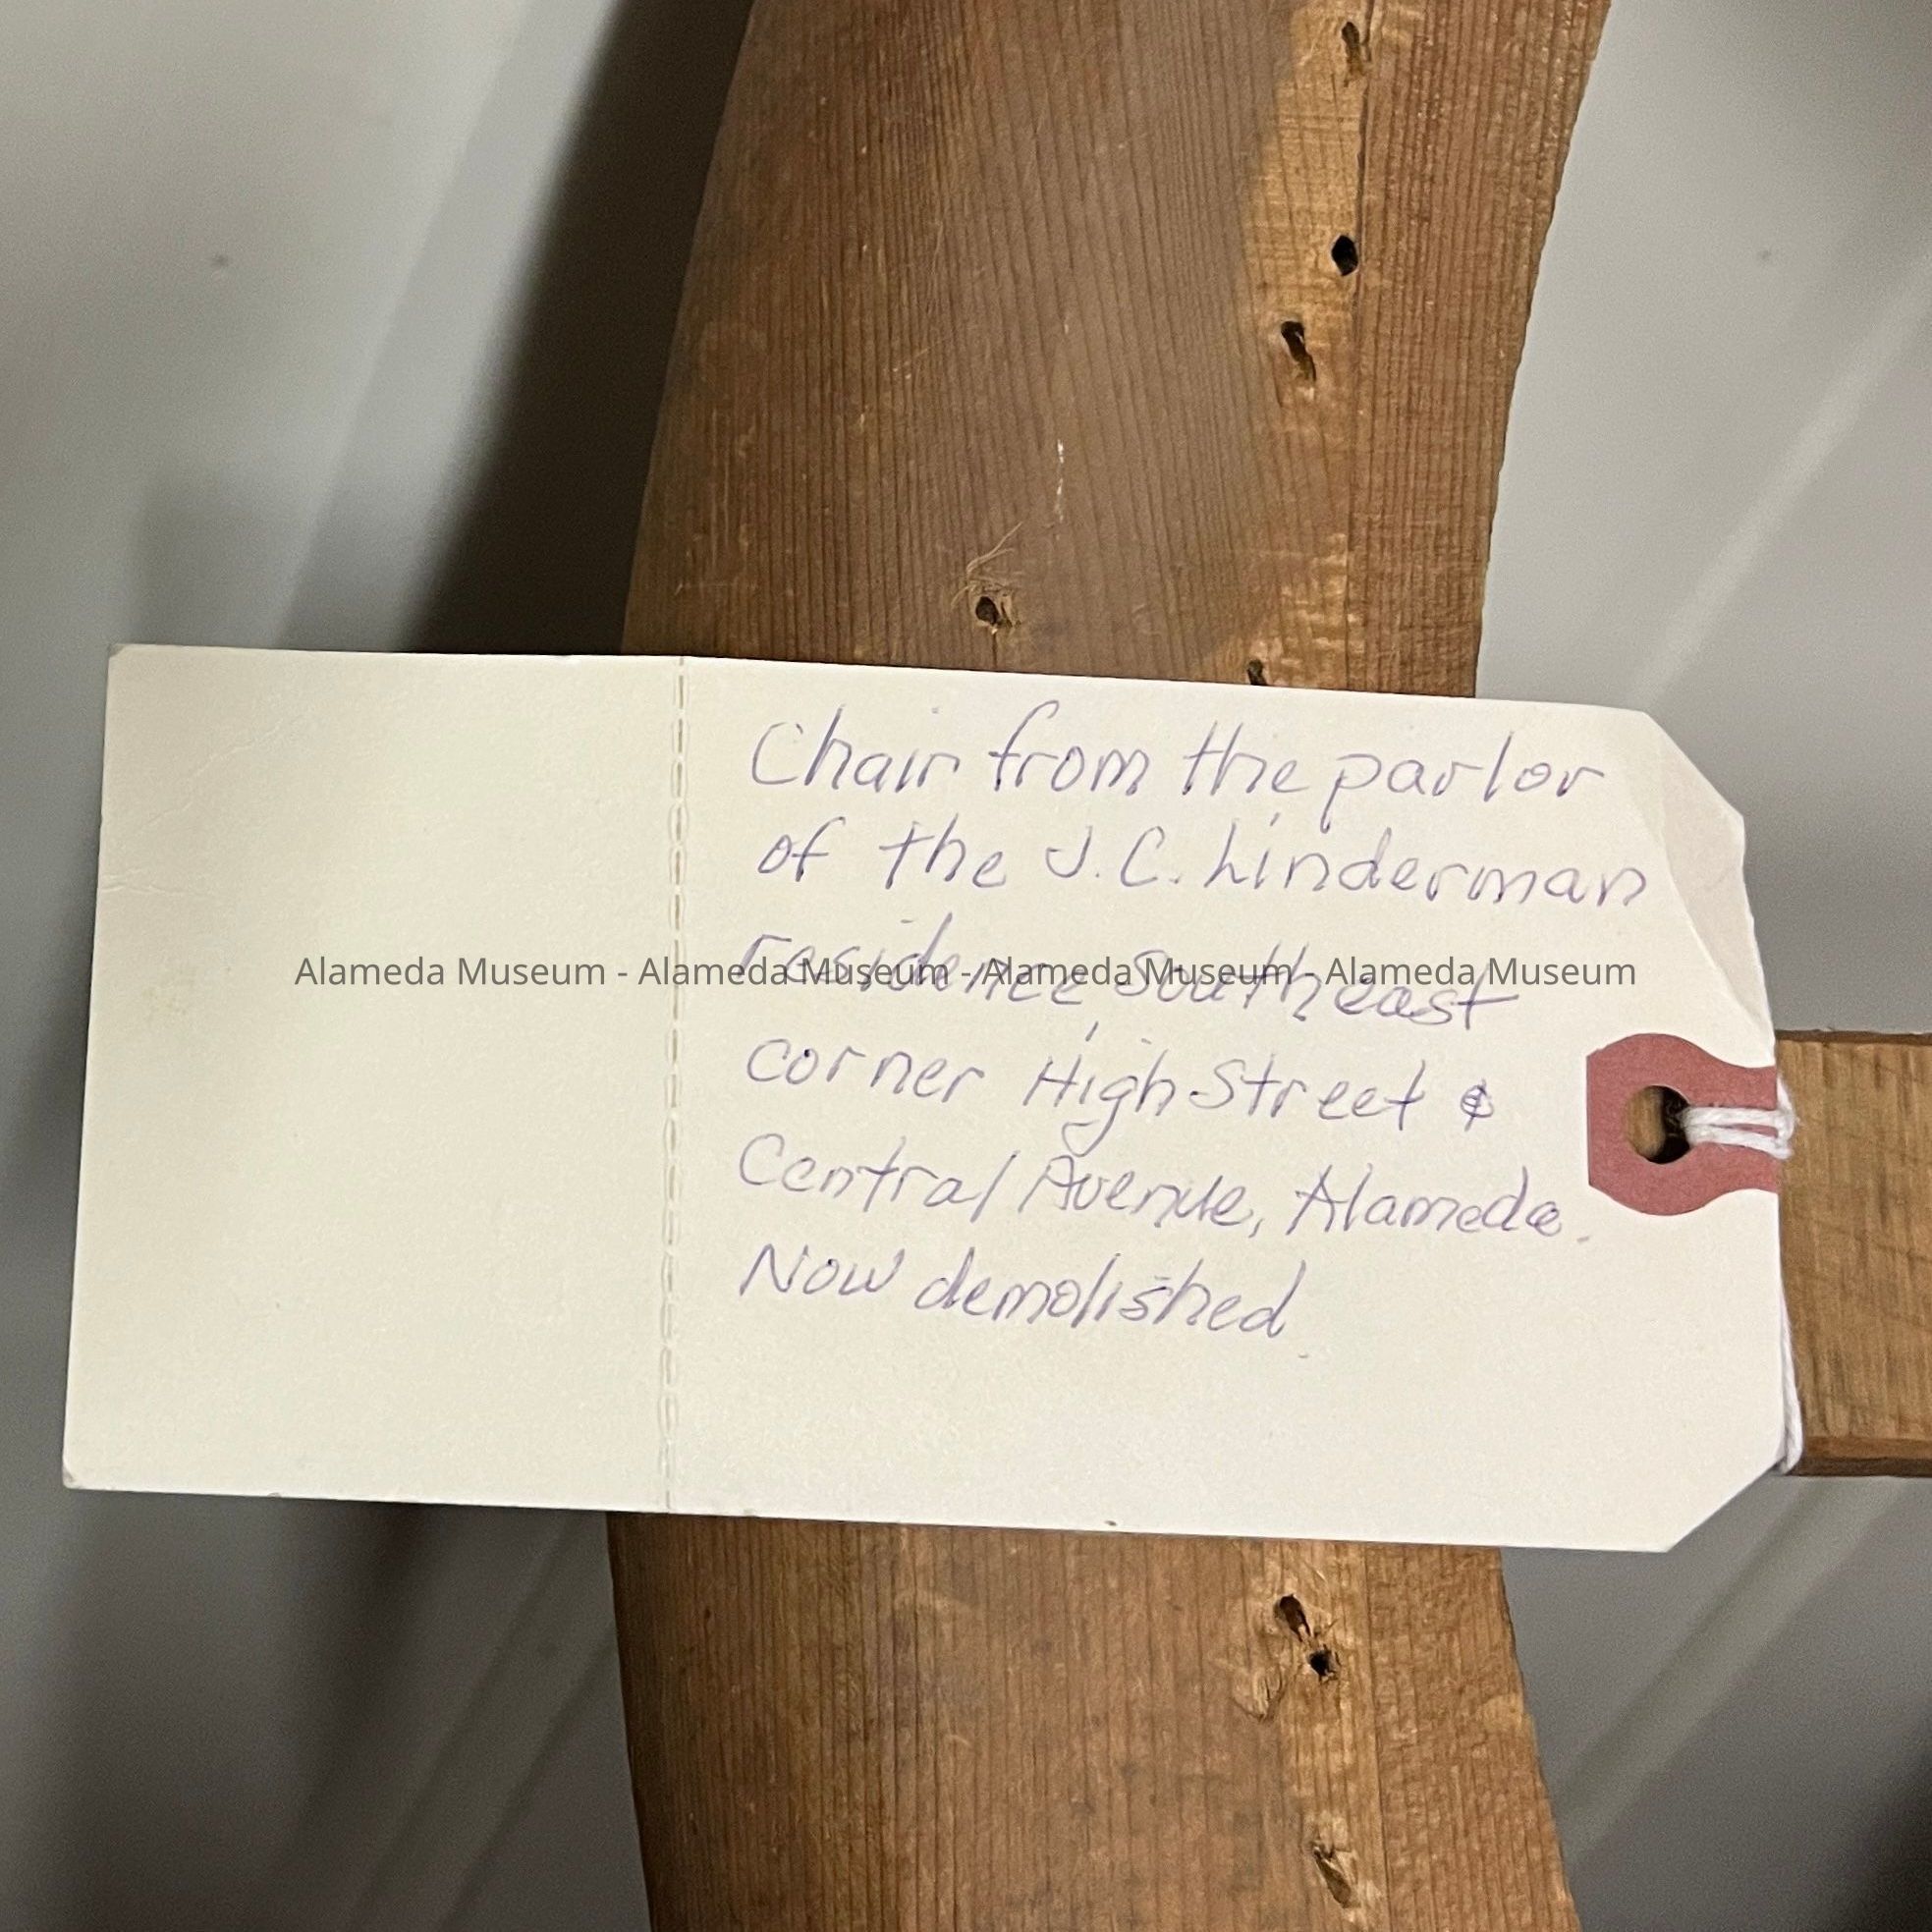 Chair from the parlor
of the J.C. Linderman
residence, Southeast
Alameda Museum - Alameda Museum - Alameda Museum - Alameda Museum
corner High Street &
Central Avenue, Alameda.
Now demolished.